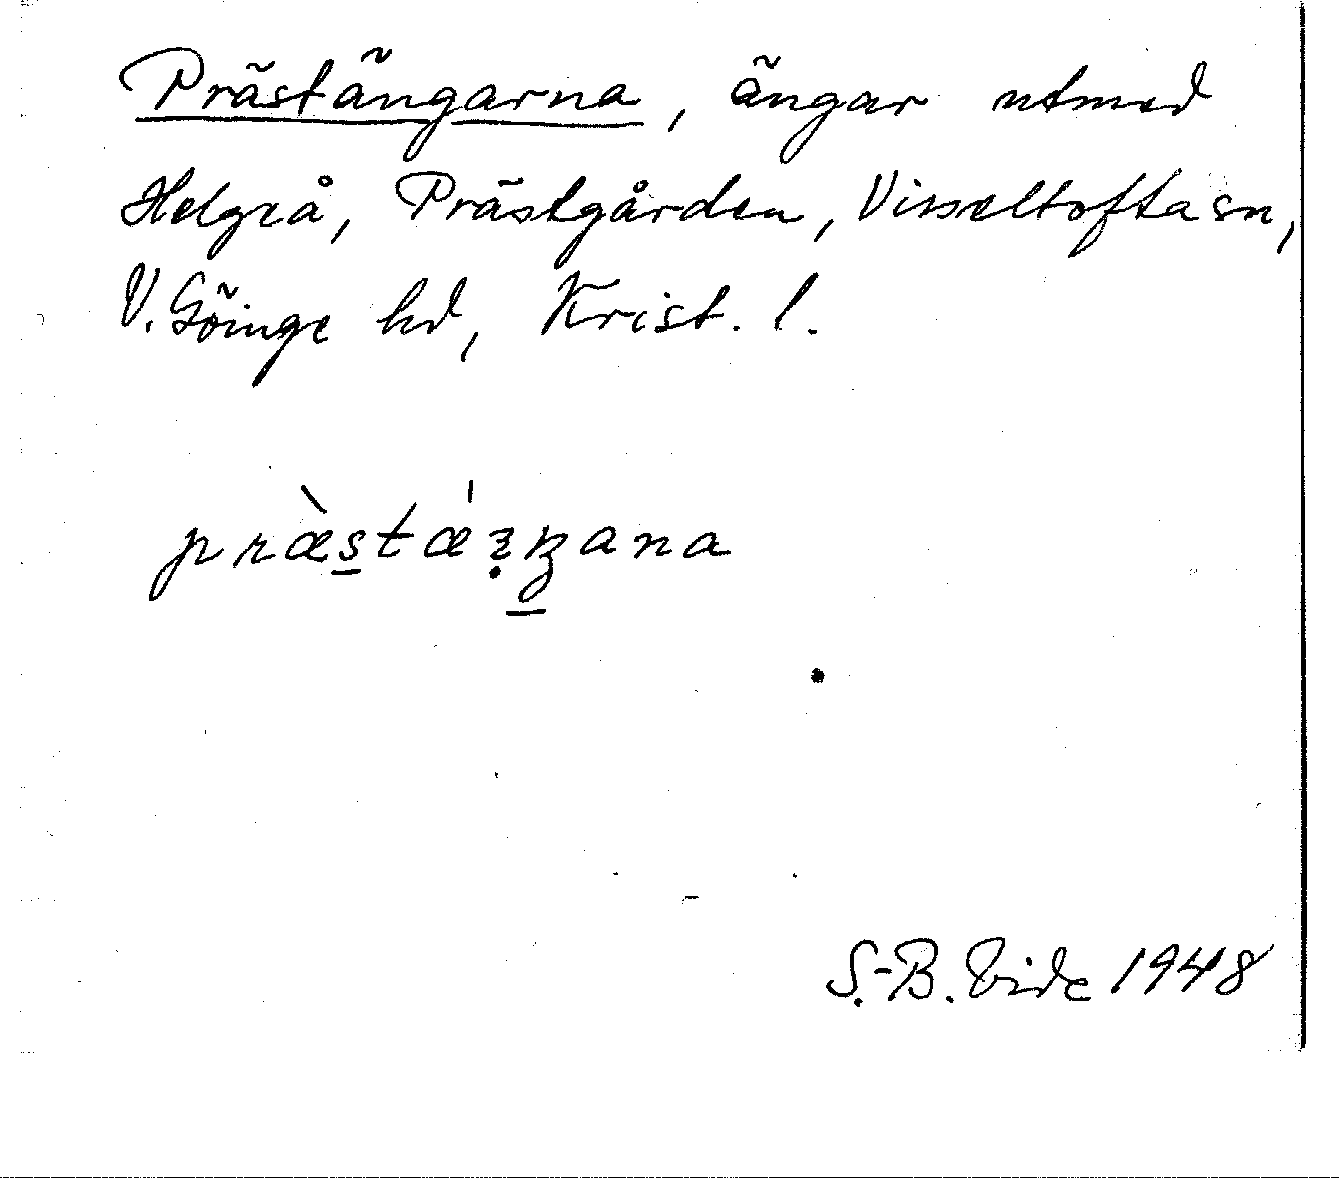 Prästängarna, ängar utmed
Helgeå, Prästgården, Visseltofta sn,
V. Göinge hd, Krist. l.
S.-B. Vide 1948